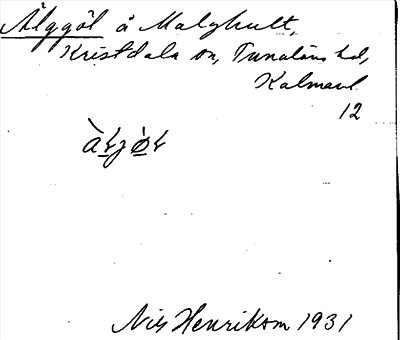 Älggöl å Malghult,
Kristdala sn, Tunaläns hd,
Kalmar l.
12
Nils Henriksson 1931